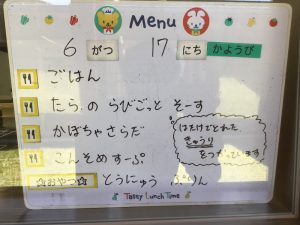 Menu
6 がつ 17 にち かようび
ごはん
たらの らびごっと そーす
かぼちゃさらだ
こんそめすーぷ
☆おやつ☆ とうにゅう ぷりん
はたけでとれた
きゅうり
をつかっています
Tasty Lunch Time